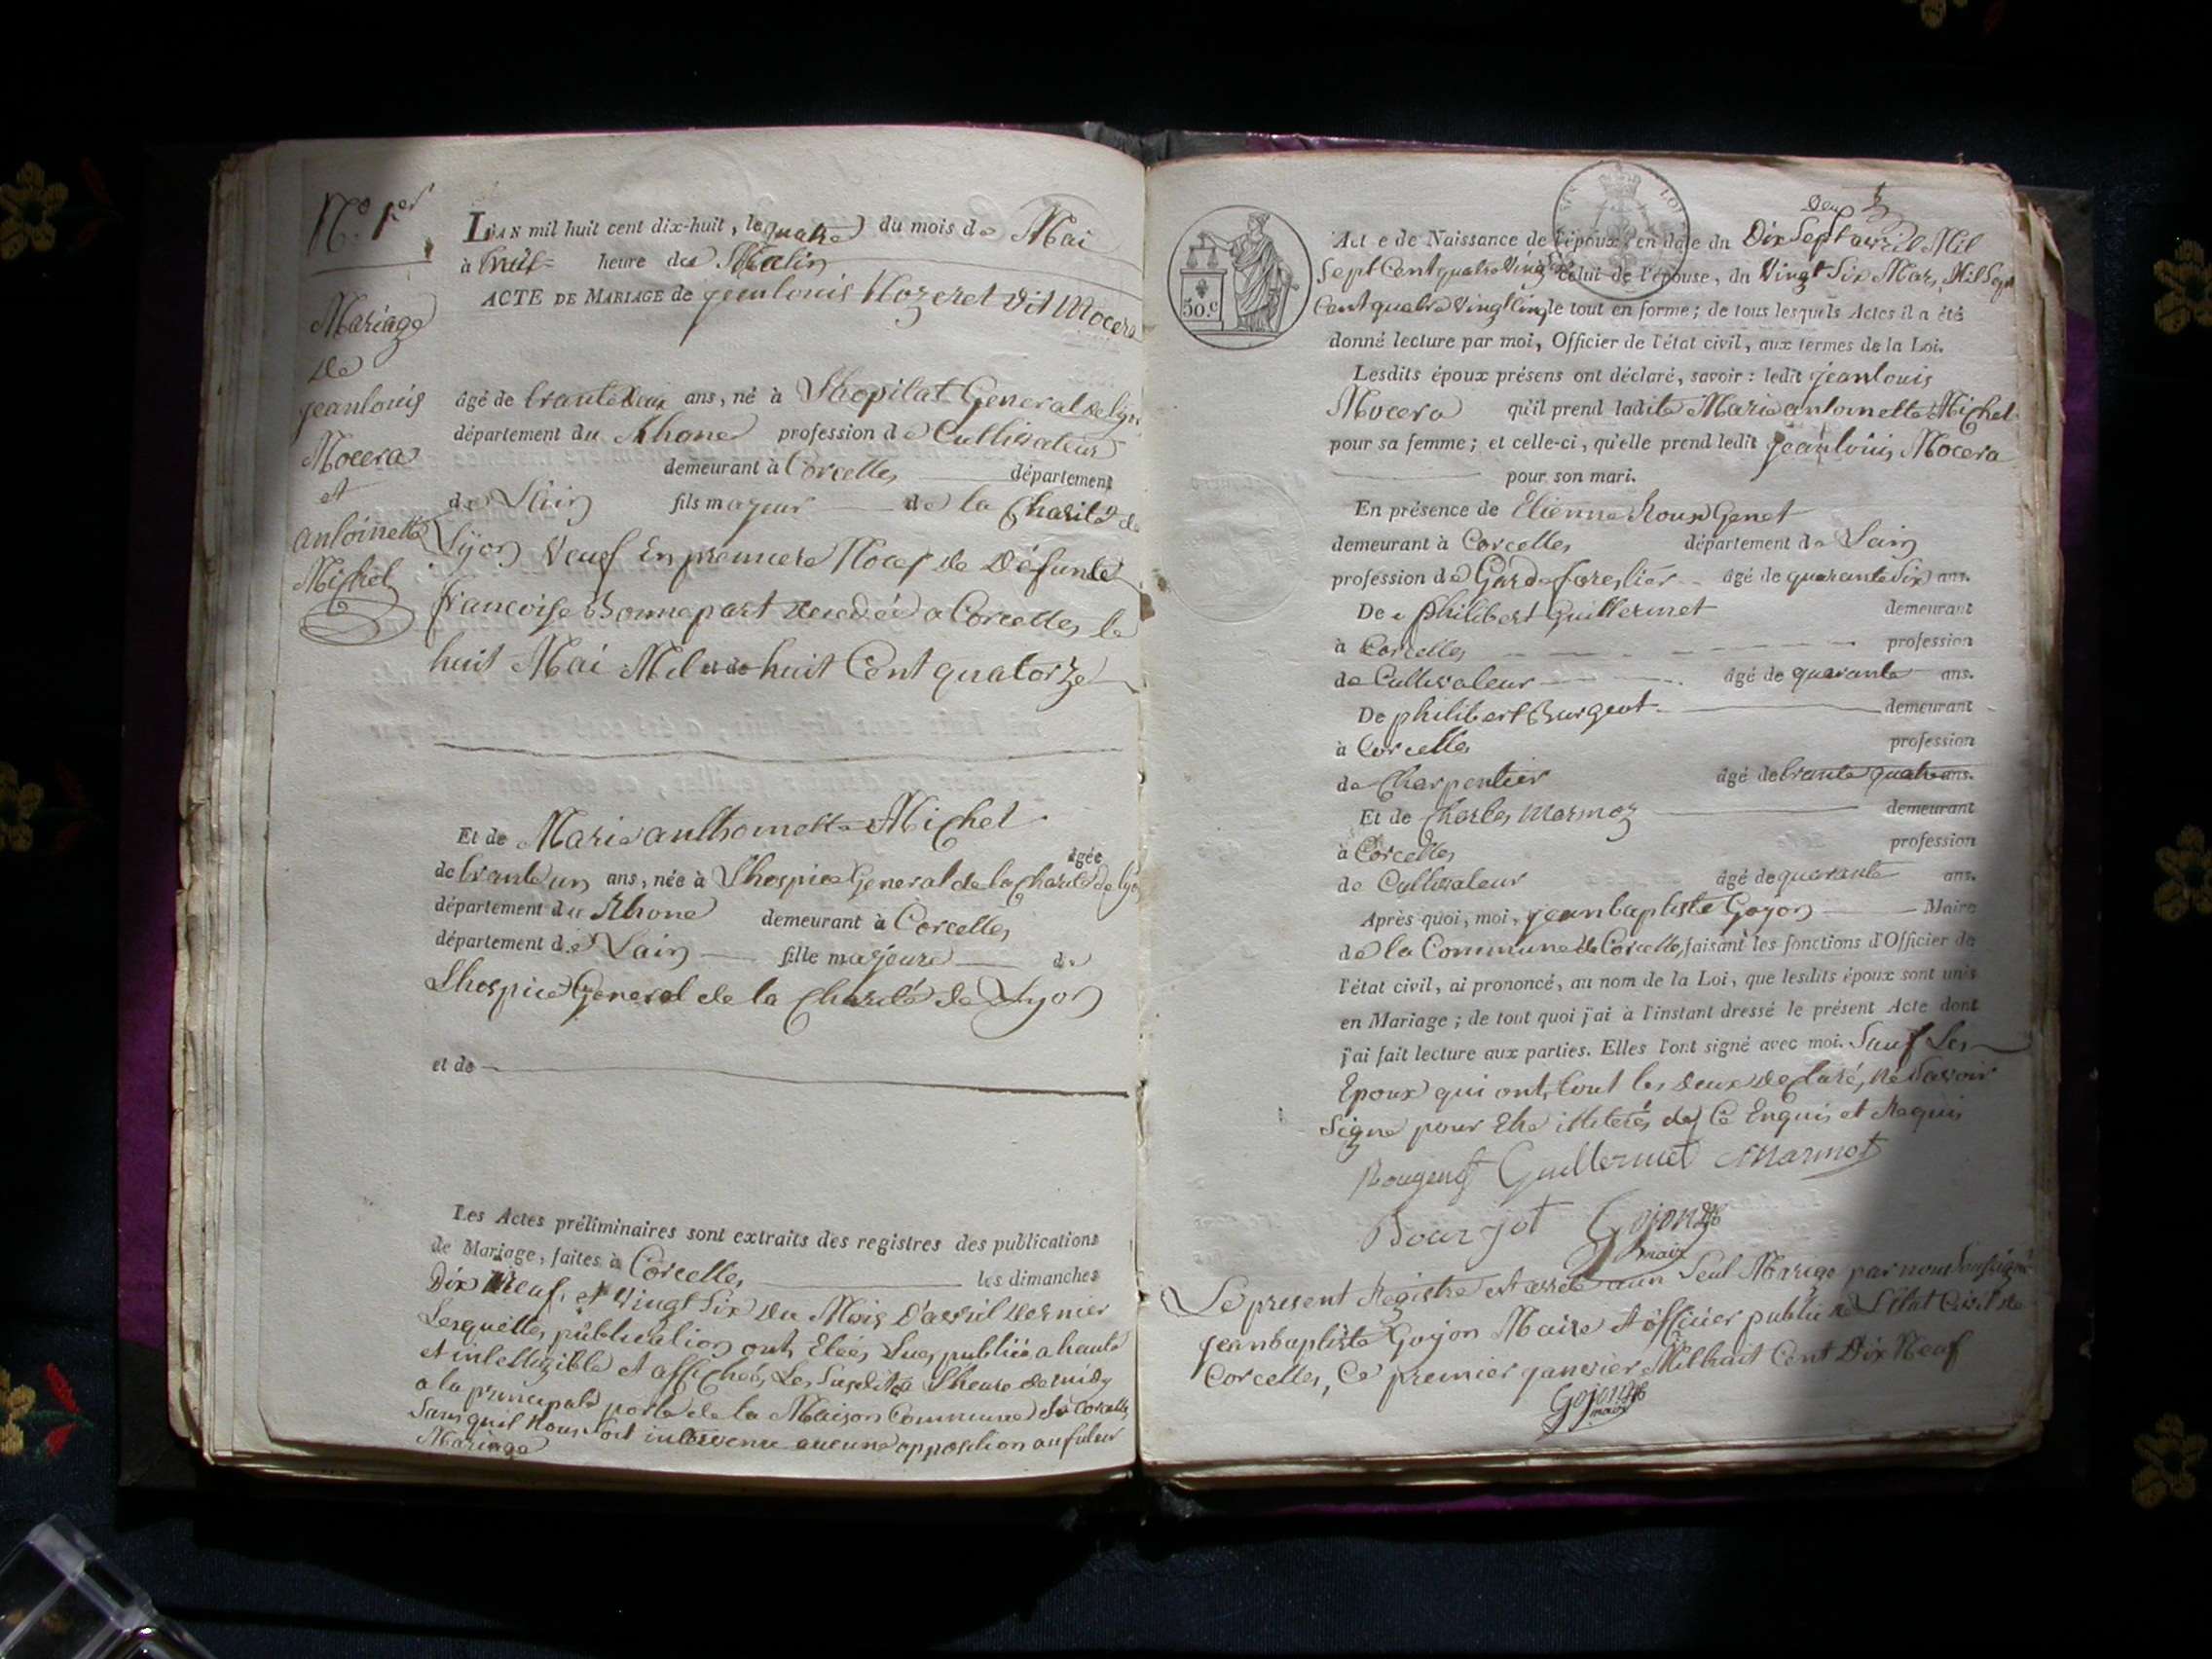 N.º 1.er
Mariage
de
jeanlouis
Mocera
et
antoinette
Michel
L'AN mil huit cent dix-huit, le quatre du mois de Mai
à huit heure du Matin
ACTE DE MARIAGE de jeanlouis Nozeret dit Mocera
âgé de trante deux ans, né à Lhopilat General de lyon
département du Rhone profession de Cultivateur
demeurant à Corcelles département
de Lain fils majeur de la Charité de
Lyon Veuf En premiere Noces de Défunte
francoise Bonnepart décédée a Corcelles le
huit Mai Mil huit Cent quatorze
Et de Marie anthoinette Michel âgée
de trante un ans, née à Lhospice General de la Charité de lyon
département du Rhone demeurant à Corcelles
département de Lain fille majeure de
Lhospice General de la Charité de Lyon
et de
Les Actes préliminaires sont extraits des registres des publications
de Mariage, faites à Corcelles les dimanches
Dix Neuf et vingt Six du Mois D'avril dernier
Lesquelles publication ont Eteés Lues publiées a haute
et intelligible et affichées Les Susdits a Lheure de midy
a la principale porte de la Maison Commune de Corcelles
Sans quil Nous Soit intervenu aucune opposition au futur
Mariage
Deux
Acte de Naissance de l'époux, en date du Dix Sept avril Mil
Sept Cent quatre Vingt celui de l'épouse, du Vingt Six Mars Mil Sept
Cent quatre Vingt Cinq le tout en forme; de tous lesquels Actes il a été
50.c
donné lecture par moi, Officier de l'état civil, aux termes de la Loi.
Lesdits époux présens ont déclaré, savoir: ledit jeanlouis
Mocera qu'il prend ladite Marie antoinette Michel
pour sa femme; et celle-ci, qu'elle prend ledit jeanlouis Mocera
pour son mari.
En présence de Etienne Roux Genet
demeurant à Corcelles département de Lain
profession de Garde forestier âgé de quarante Six ans.
De philibert Guillermet demeurant
à Corcelles profession
de Cultivateur âgé de quarante ans.
De philibert Burgeot demeurant
à Corcelles profession
de Charpentier âgé de trante quatre ans.
Et de Charles Marmoz demeurant
à Corcelles profession
de Cultivateur âgé de quarante ans.
Après quoi, moi, jeanbaptiste Gojon Maire
de la Commune de Corcelles, faisant les fonctions d'Officier de
l'état civil, ai prononcé, au nom de la Loi, que lesdits époux sont unis
en Mariage; de tout quoi j'ai à l'instant dressé le présent Acte dont
j'ai fait lecture aux parties. Elles l'ont signé avec moi. Sauf Les
Epoux qui ont tout les deux declaré, Ne Savoir
Signe pour Etre illiterés de Ce Enquis et Requis
Rougenet Guillermet Marmot
Bourjot Gojon
maire
Le present Registre est arreté a un Seul Mariage par nous Soussigné
jeanbaptiste Gojon Maire et officier public de L'état Civil de
Corcelles, Ce premier janvier Mil huit Cent Dix Neuf
Gojon
maire